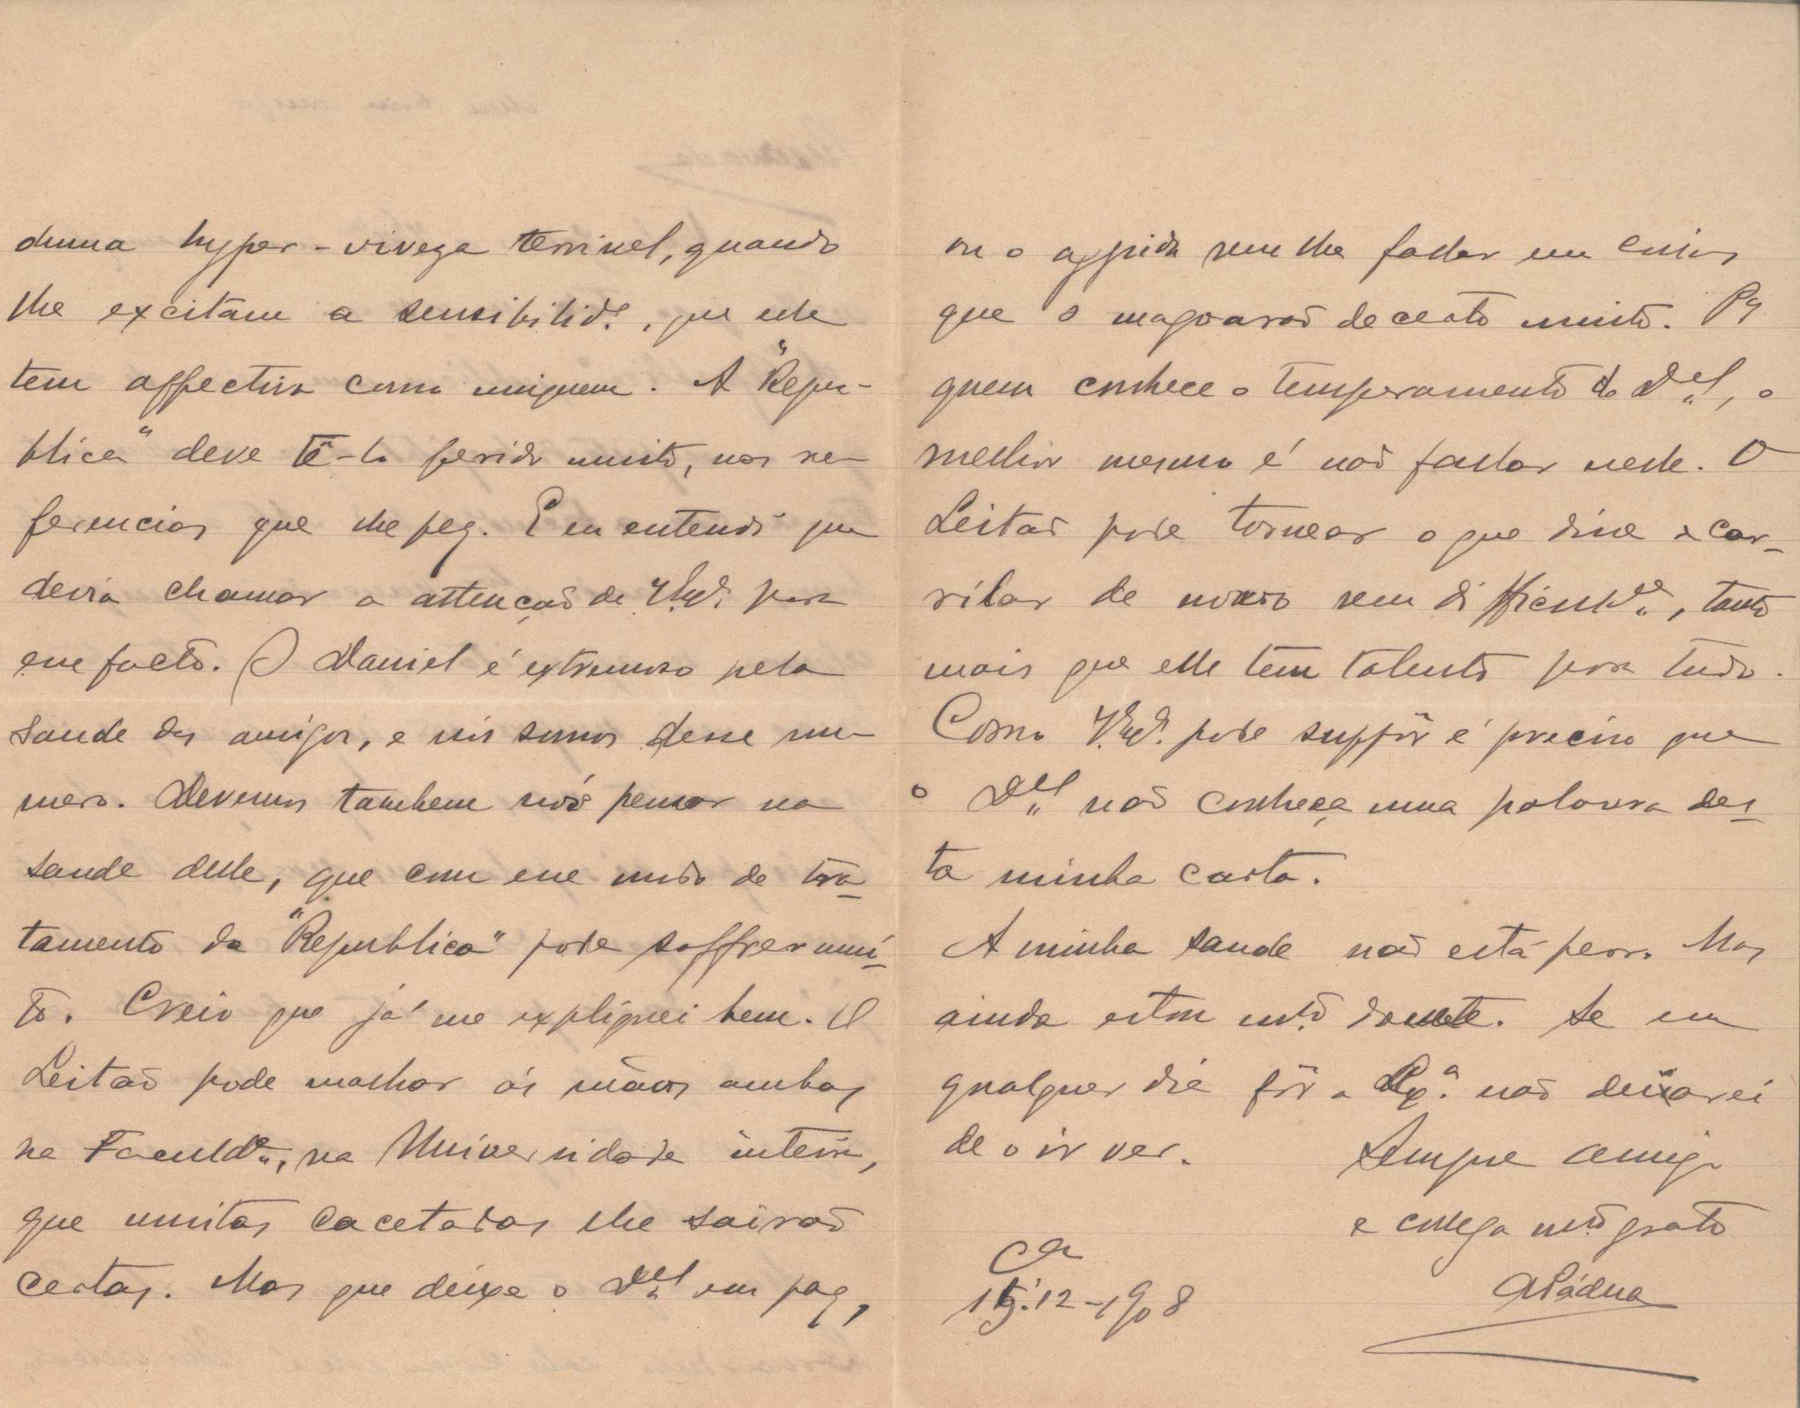 duma hyper-viveza terrivel, quando
lhe excitam a sensibilid.e, que elle
tem affectiva como ninguem. A "Repu-
blica" deve tê-lo ferido muito, nas re-
ferencias que lhe fez. E eu entendi que
devia chamar a attenção de V. para
esse facto. O Daniel é extremoso pela
saude dos amigos, e nós somos desse nu-
mero. Devemos tambem nós pensar na
saude delle, que com esse modo de tra-
tamento da "Republica" pode soffrer mui-
to. Creio que já me expliquei bem. O
Leitão pode malhar ás mãos ambas
na Faculd.e, na Universidade inteira,
que muitas cacetadas lhe sairão
certas. Mas que deixe o D.el em paz,
ou o aggrida sem lhe fallar em coisas
que o magoarão decerto muito. Pª
quem conhece o temperamento do D.el, o
melhor mesmo é não fallar nelle. O
Leitão pode tornear o que disse e car-
rilar de novo sem difficuld.e, tanto
mais que elle tem talento para tudo.
Como V. pode suppôr é preciso que
o D.el não conheça uma palavra des-
ta minha carta.
A minha saude não está peor. Mas
ainda estou mt.º doente. Se em
qualquer dia fôr a Lxª. não deixarei
de o ir ver. Sempre amigo
e collega mt.º grato
Cª
15-12-1908
APádua